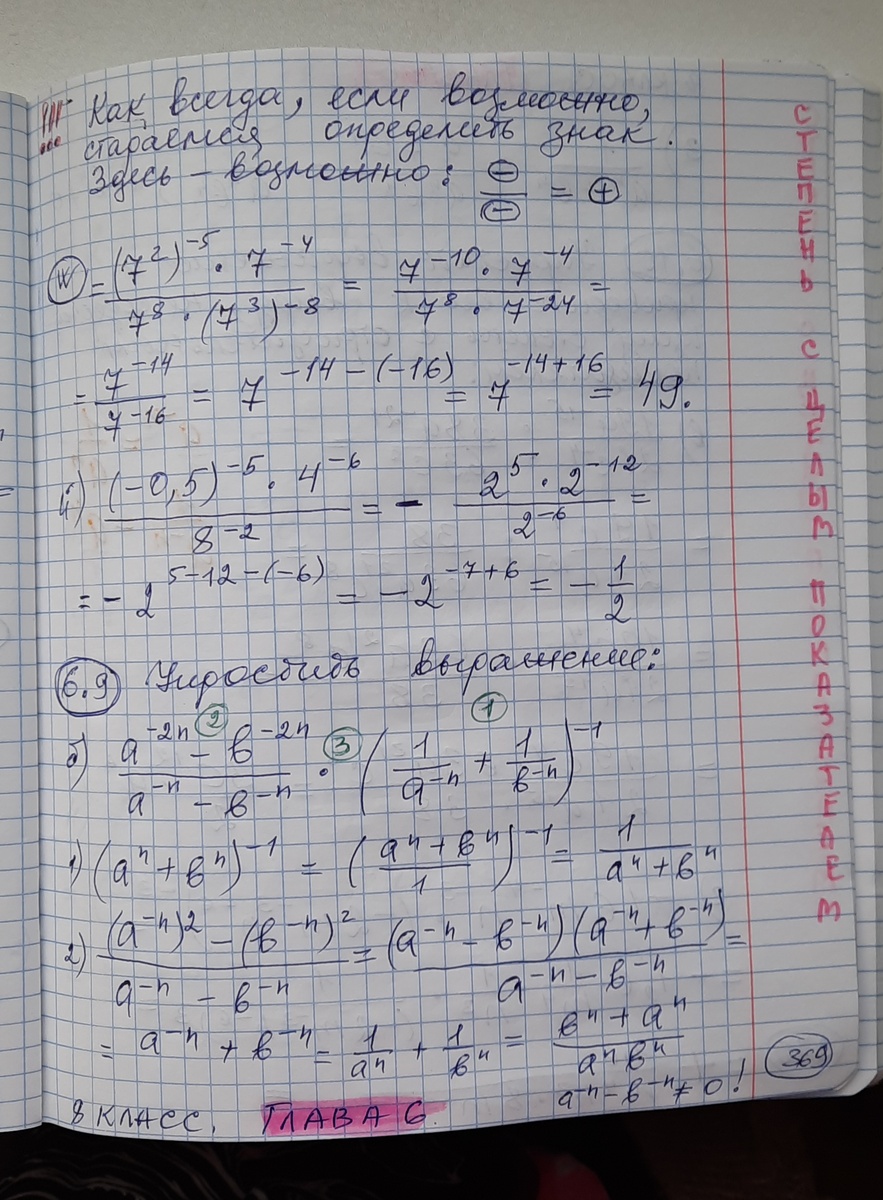 !!! Как всегда, если возможно,
стараемся определить знак.
Здесь – возможно: ⊖/⊖ = ⊕
= ((7²)⁻⁵ · 7⁻⁴)/(7⁸ · (7³)⁻⁸) = (7⁻¹⁰ · 7⁻⁴)/(7⁸ · 7⁻²⁴) =
= 7⁻¹⁴/7⁻¹⁶ = 7^(-14-(-16)) = 7^(-14+16) = 49.
й) ((-0,5)⁻⁵ · 4⁻⁶)/8⁻² = - (2⁵ · 2⁻¹²)/2⁻⁶ =
= -2^(5-12-(-6)) = -2^(-7+6) = -1/2
6.9 Упростить выражение:
② ③ ①
б) (a⁻²ⁿ - b⁻²ⁿ)/(a⁻ⁿ - b⁻ⁿ) · (1/a⁻ⁿ + 1/b⁻ⁿ)⁻¹
1) (aⁿ + bⁿ)⁻¹ = ((aⁿ + bⁿ)/1)⁻¹ = 1/(aⁿ + bⁿ)
2) ((a⁻ⁿ)² - (b⁻ⁿ)²)/(a⁻ⁿ - b⁻ⁿ) = ((a⁻ⁿ - b⁻ⁿ)(a⁻ⁿ + b⁻ⁿ))/(a⁻ⁿ - b⁻ⁿ) =
= a⁻ⁿ + b⁻ⁿ = 1/aⁿ + 1/bⁿ = (bⁿ + aⁿ)/(aⁿbⁿ)
a⁻ⁿ - b⁻ⁿ ≠ 0!
369
8 КЛАСС. ГЛАВА 6.
СТЕПЕНЬ С ЦЕЛЫМ ПОКАЗАТЕЛЕМ